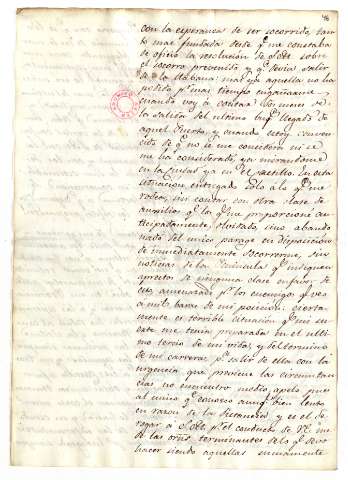 con la esperanza de ser socorrida tan
to mas fundada desde q.e me constaba
de oficio la resolucion de S. Exª sobre
el socorro prevenido y q.e devia salir
de la Habana: mas ya aquella no ha
podido p.r mas tiempo engañarme
cuando voy á contar dos meses de
la salida del ultimo buq.e llegado de
aquel Puerto, y cuando estoy conven
cido de q.e no se me considera ni se
me ha considerado, ya morandome
en la Ciudad ya en el castillo. En esta
situacion entregado solo á lo q.e me
rodea, sin contar con otra clase de
auxilios q.e los q.e me proporcione an
ticipadamente, olvidado, sino abando
nado del unico parage en disposicion
de inmediatamente socorrerme, sin
noticias de la Peninsula q.e indiquen
aprestos de ninguna clase en favor de
esta, amenazado p.r los enemigos q.e veo
á mil baras de mi posicion: cierta-
mente es terrible situacion q.e mi su-
erte me tenia preparada en el ulti
mo tercio de mi vida, y del termino
de mi carrera: p.a salir de ella con la
urgencia que previene las circunstan
cias no encuentro medio, apelo pues
al unico q.e conozco aunq.e bien lento
en razon de la distancia y es el de
rogar á S. por el conducto de V.E. me
de las orns terminantes de lo q.e devo
hacer siendo aquellas sumamente